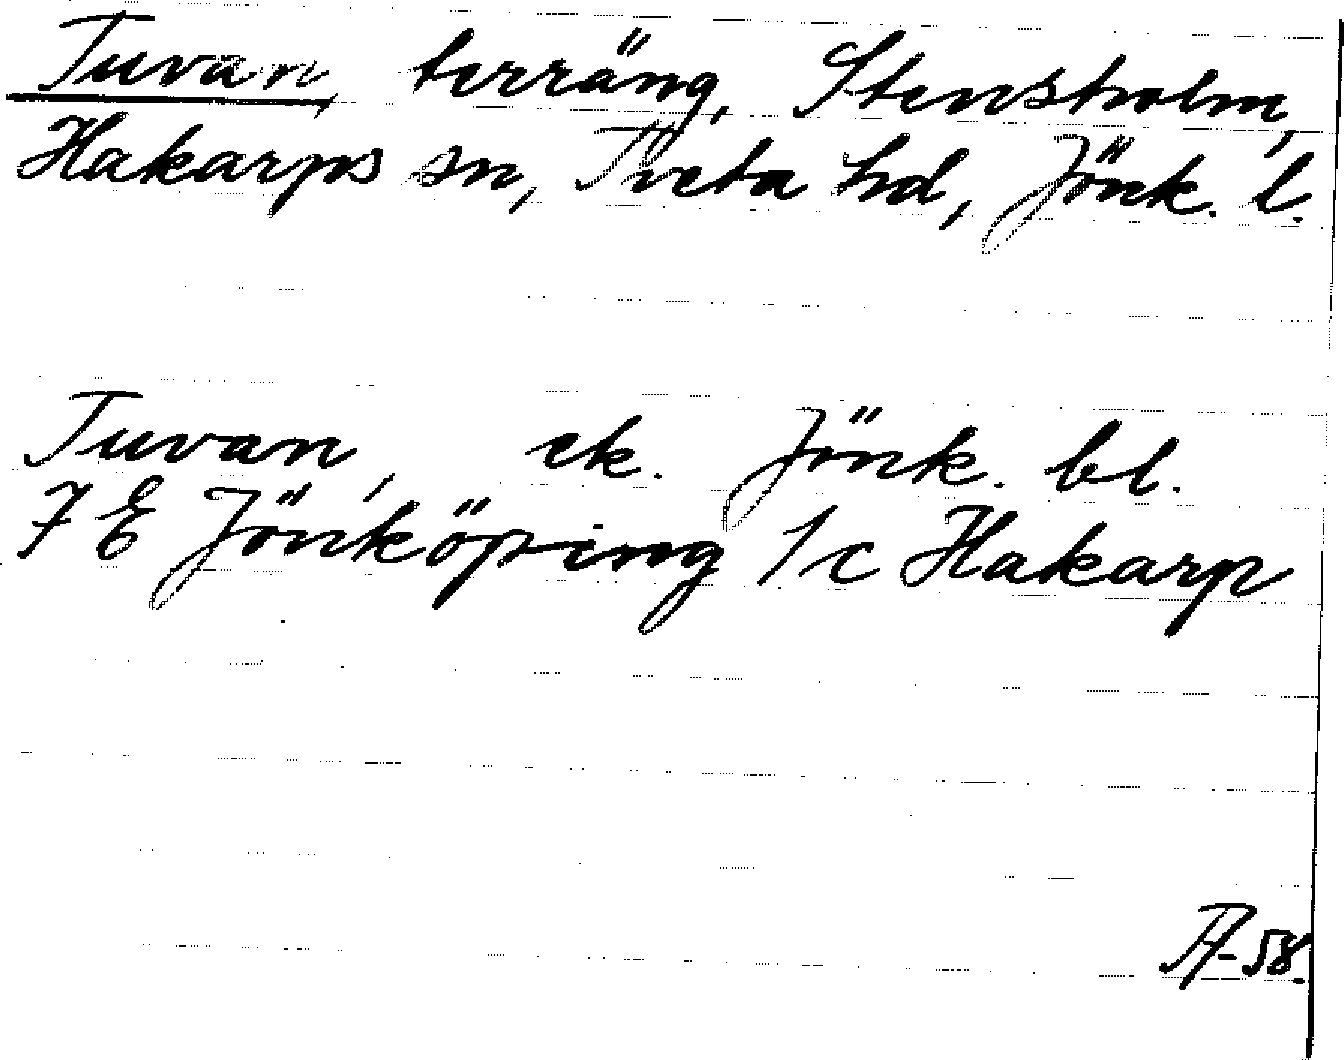 Tuvan, terräng, Stensholm,
Hakarps sn, Tveta hd, Jönk. l.
Tuvan, ek. Jönk. bl.
7 E Jönköping 1 c Hakarp